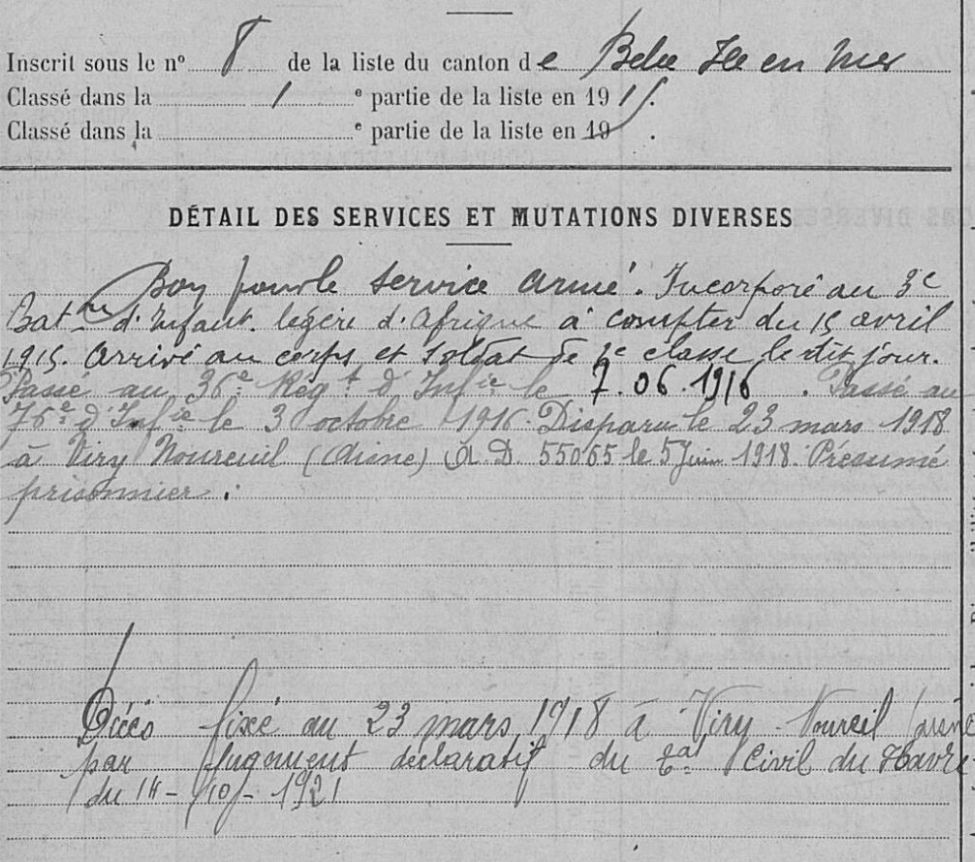 Inscrit sous le n° 8 de la liste du canton de Belle Ile en Mer
Classé dans la 1 e partie de la liste en 1915.
Classé dans la e partie de la liste en 19 .
DÉTAIL DES SERVICES ET MUTATIONS DIVERSES
Bon pour le service armé. Incorporé au 3e
Bat. on d'Infant. légère d'Afrique à compter du 15 avril
1915. Arrivé au corps et soldat de 2e classe le dit jour.
Passé au 36e Régt d'Infie le 7.06.1916. Passé au
76e d'Infie le 3 octobre 1916. Disparu le 23 mars 1918
à Viry Noureuil (Aisne) A.D. 55065 le 5 Juin 1918. Présumé
prisonnier.
Décès fixé au 23 mars 1918 à Viry Noureil (Aisne
par Jugement déclaratif du tal Civil du Havre
du 14-10-1921